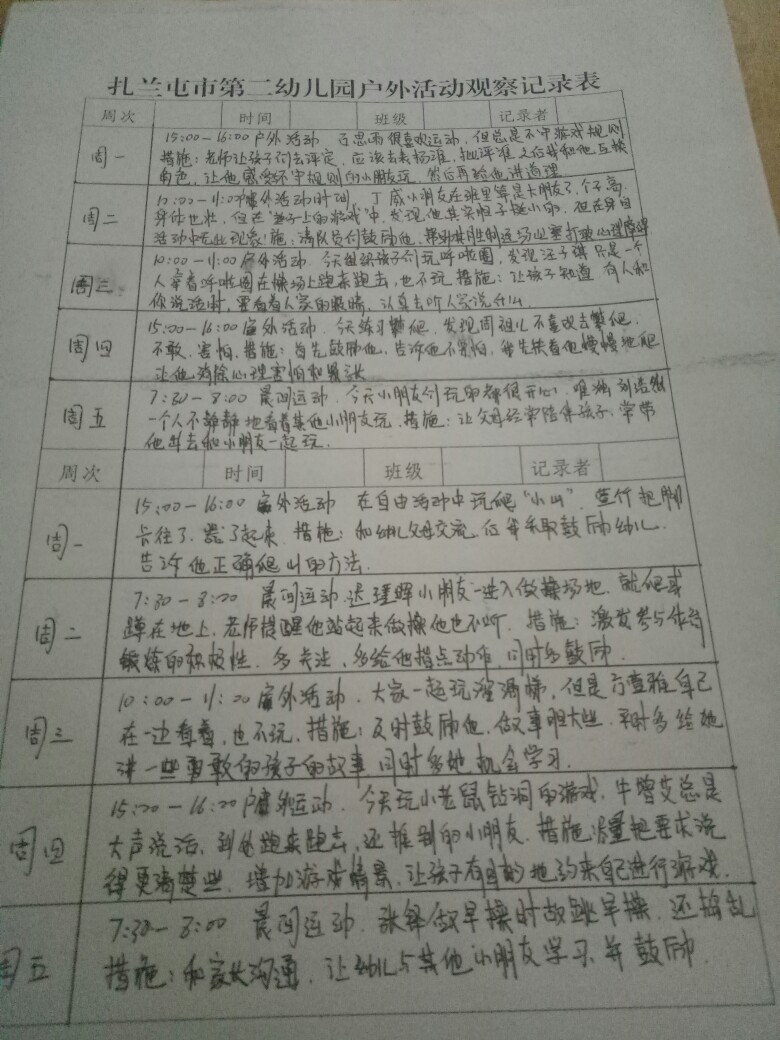 扎兰屯市第二幼儿园户外活动观察记录表
周次 时间 班级 记录者
周一
15:00-16:00户外活动 思雨很喜欢运动,但总是不守游戏规则
措施:老师让孩子们去评定,应该去表扬谁,批评谁之后我和他互换
角色,让他感受不守规则的小朋友玩,然后再给他讲道理
周二
10:00-11:00户外活动时间,丁威小朋友在班里算是大朋友了,个子高,
身体也壮,但在"垫子上的游戏"中,发现他其实胆子挺小的,但在
活动中无此现象!施:请队员们鼓励他,
周三
10:00-11:00户外活动,今天组织孩子们玩呼啦圈,发现汪子琪只是一个
人拿着呼啦圈在操场上跑来跑去,也不玩 措施:让孩子知道 有人和
你说话时,要看着人家的眼睛,认真去听人家说什么
周四
15:00-16:00户外活动,今天练习攀爬,发现周祖儿不喜欢去攀爬,
不敢,害怕,措施:首先鼓励他,告诉他不害怕,我先扶着他慢慢地爬
让他消除心理害怕和紧张
周五
7:30-8:00 晨间运动,今天小朋友们玩的都很开心,唯独刘浩然
一个人不静静地看着其他小朋友玩,措施:让父母经常陪伴孩子,常带
他出去和小朋友一起玩.
周次 时间 班级 记录者
周一
15:00-16:00户外活动 在自由活动中玩爬"小山",把脚
卡住了,哭了起来,措施:和幼儿父母交流,应采取鼓励幼儿.
告诉他正确爬山的方法.
周二
7:30-8:00 晨间运动,小朋友一进入做操场地,就爬或
蹲在地上,老师提醒他站起来做操他也不听.措施:激发参与体育
锻炼的积极性.多关注,多给他指点动作,同时多鼓励.
周三
10:00-11:00户外活动,大家一起玩滑滑梯,但是方壹雅自己
在一边看着,也不玩,措施:及时鼓励他,做事胆大些,平时多给她
讲一些勇敢的孩子的故事,同时多她机会学习.
周四
15:00-16:00户外运动,今天玩小老鼠钻洞的游戏,牛曾艾总是
大声说话,到处跑来跑去,还推别的小朋友,措施尽量把要求说
得更清楚些,增加游戏情景,让孩子有目的地约束自己进行游戏.
周五
7:30-8:00 晨间运动,张铎做早操时故跳早操,还捣乱
措施:和家长沟通,让幼儿与其他小朋友学习,并鼓励.